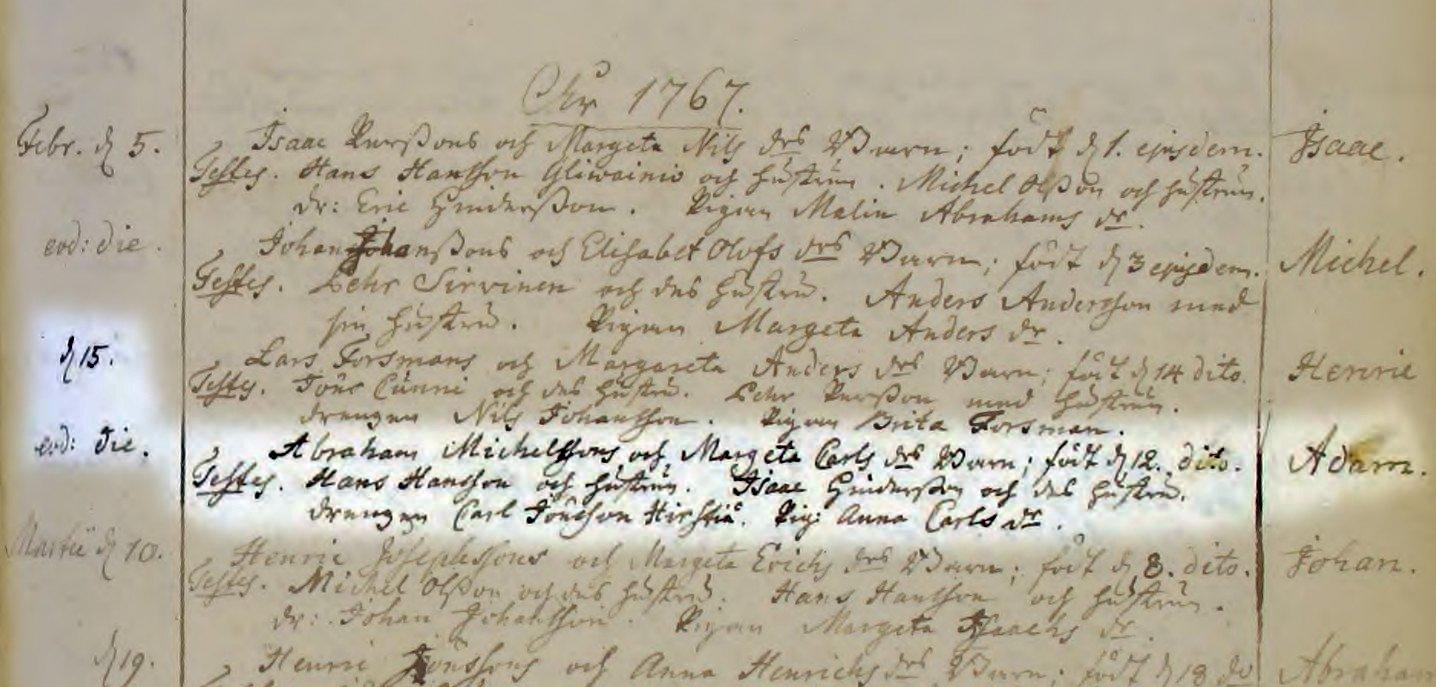 Åhr 1767.
Febr. d 5. Isaac Perßons och Margeta Nils drs Barn; födt d 1. ejusdem. Isaac.
Testes. Hans Hansson och hustrun. Michel Olßon och hustrun.
dr: Eric Hinderßon. Pigan Malin Abrahams dr.
eod: die. Johan Johanßons och Elisabet Olofs drs Barn; födt d 3 ejusdem. Michel.
Testes. Pehr Sirvinen och des hustru. Anders Andersson med
sin hustru. Pigan Margeta Anders dr.
d 15. Lars Forsmans och Margareta Anders drs Barn; födt d 14 dito. Henric
Testes. Jöns Cunni och des hustru. Pehr Perßon med hustrun.
drengen Nils Johansson. Pigan Brita Forsman.
eod: die. Abraham Michelssons och Margeta Carls drs Barn; födt d 12. dito. Adam.
Testes. Hans Hansson och hustrun. Isaac Hinderßon och des hustru.
drengen Carl Jönsson. Pig: Anna Carls dr.
Martii d 10. Henric Josephssons och Margeta Erichs drs Barn; födt d 8. dito. Johan.
Testes. Michel Olßon och des hustru. Hans Hansson och hustrun.
dr: Johan Johansson. Pigan Margeta Isaachs dr.
d 19. Henric Jönssons och Anna Henrichs drs Barn; födt d 18 do Abraham